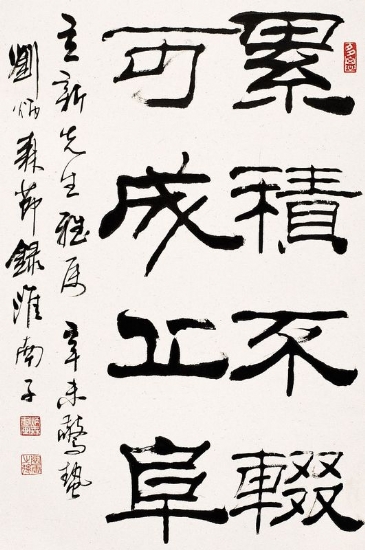 累積不輟
可成丘阜
立新先生雅属 辛未驚蟄
劉炳森節錄淮南子